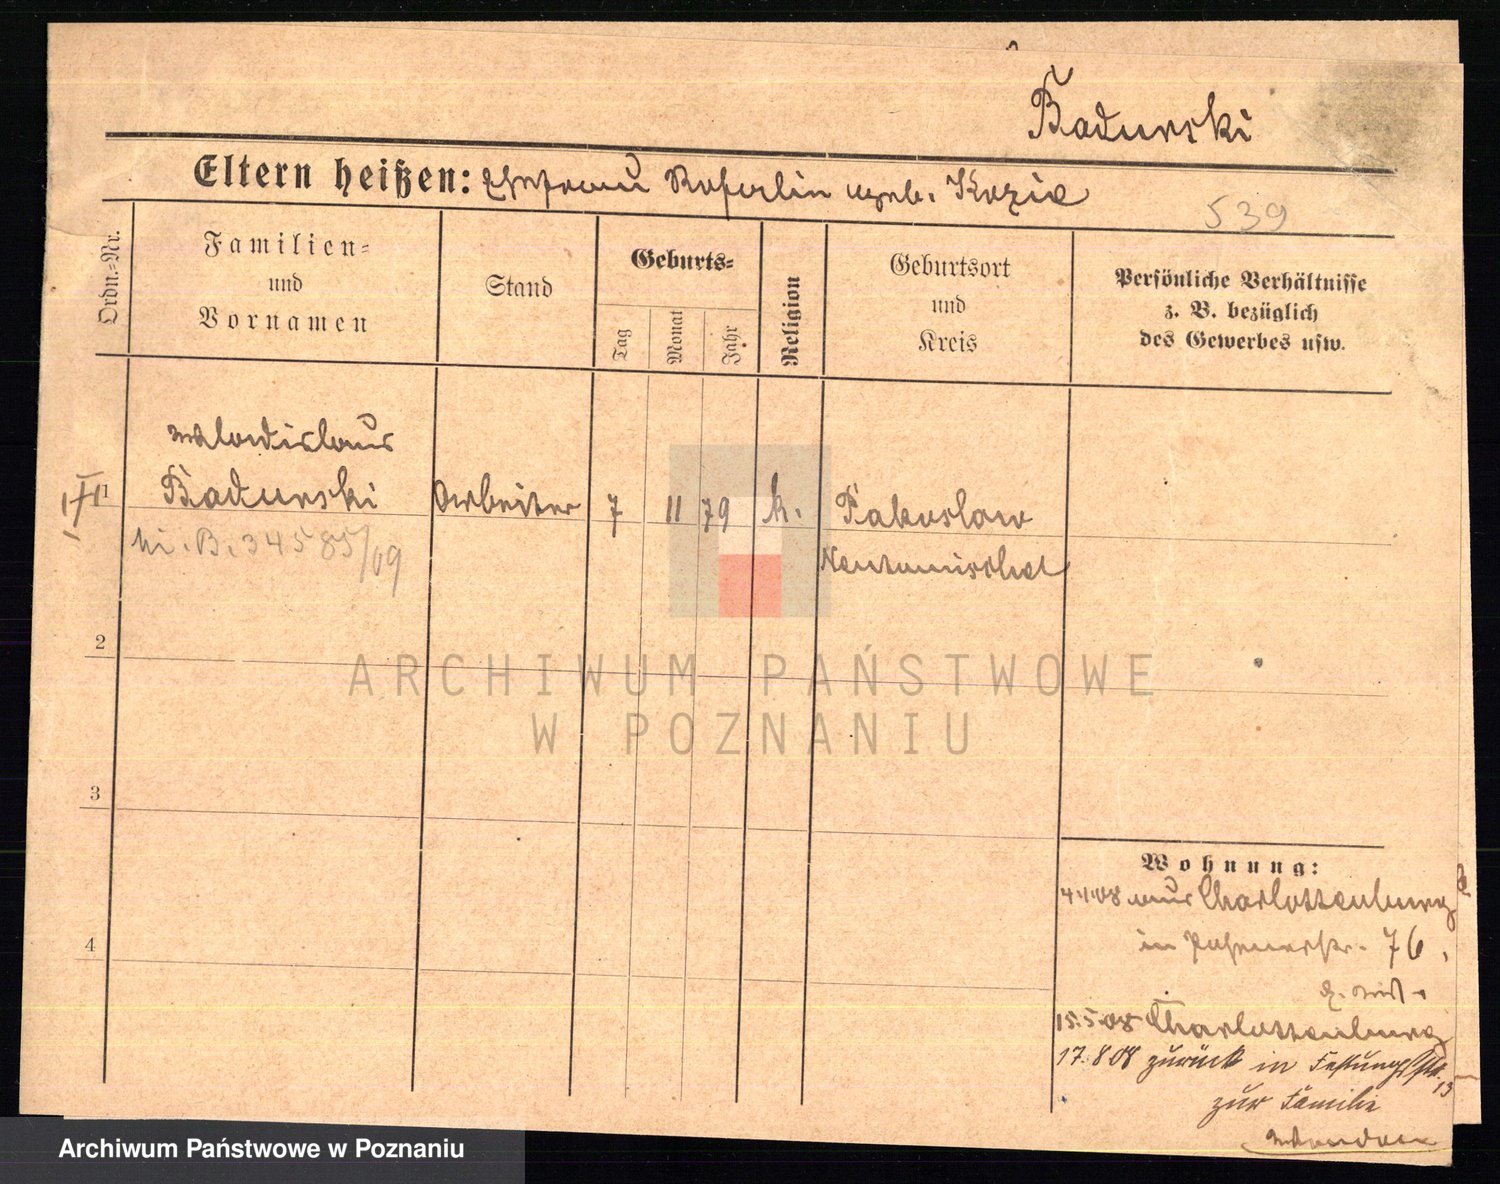 Badurski
Eltern heißen: Ehefrau geb. Kozia
539
Ordn.-Nr.
Familien-
und
Vornamen
Stand
Geburts-
Tag
Monat
Jahr
Religion
Geburtsort
und
Kreis
Persönliche Verhältnisse
z. B. bezüglich
des Gewerbes usw.
Wladislaus
1 Badurski Arbeiter 7 11 79 k. Pakoslaw
B. 34585/09 Neutomischel
2
3
4
Wohnung:
4.1.08 aus Charlottenburg
in 76
15.5.08 Charlottenburg
17.8.08 zurück in Festungsstr. 13
zur Familie
ARCHIWUM PAŃSTWOWE
W POZNANIU
Archiwum Państwowe w Poznaniu